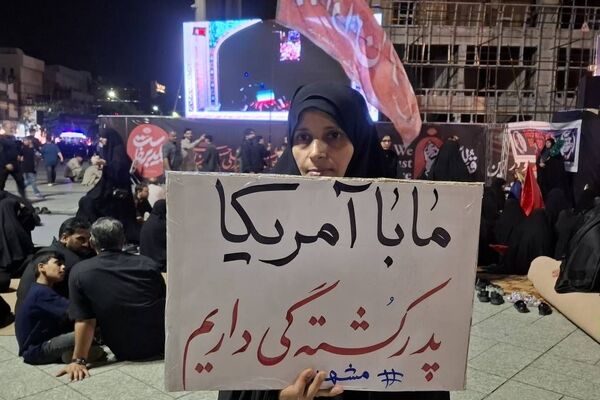 مُا بُا آمریکا
پدر کُشته گی داریم
#مشهد
We